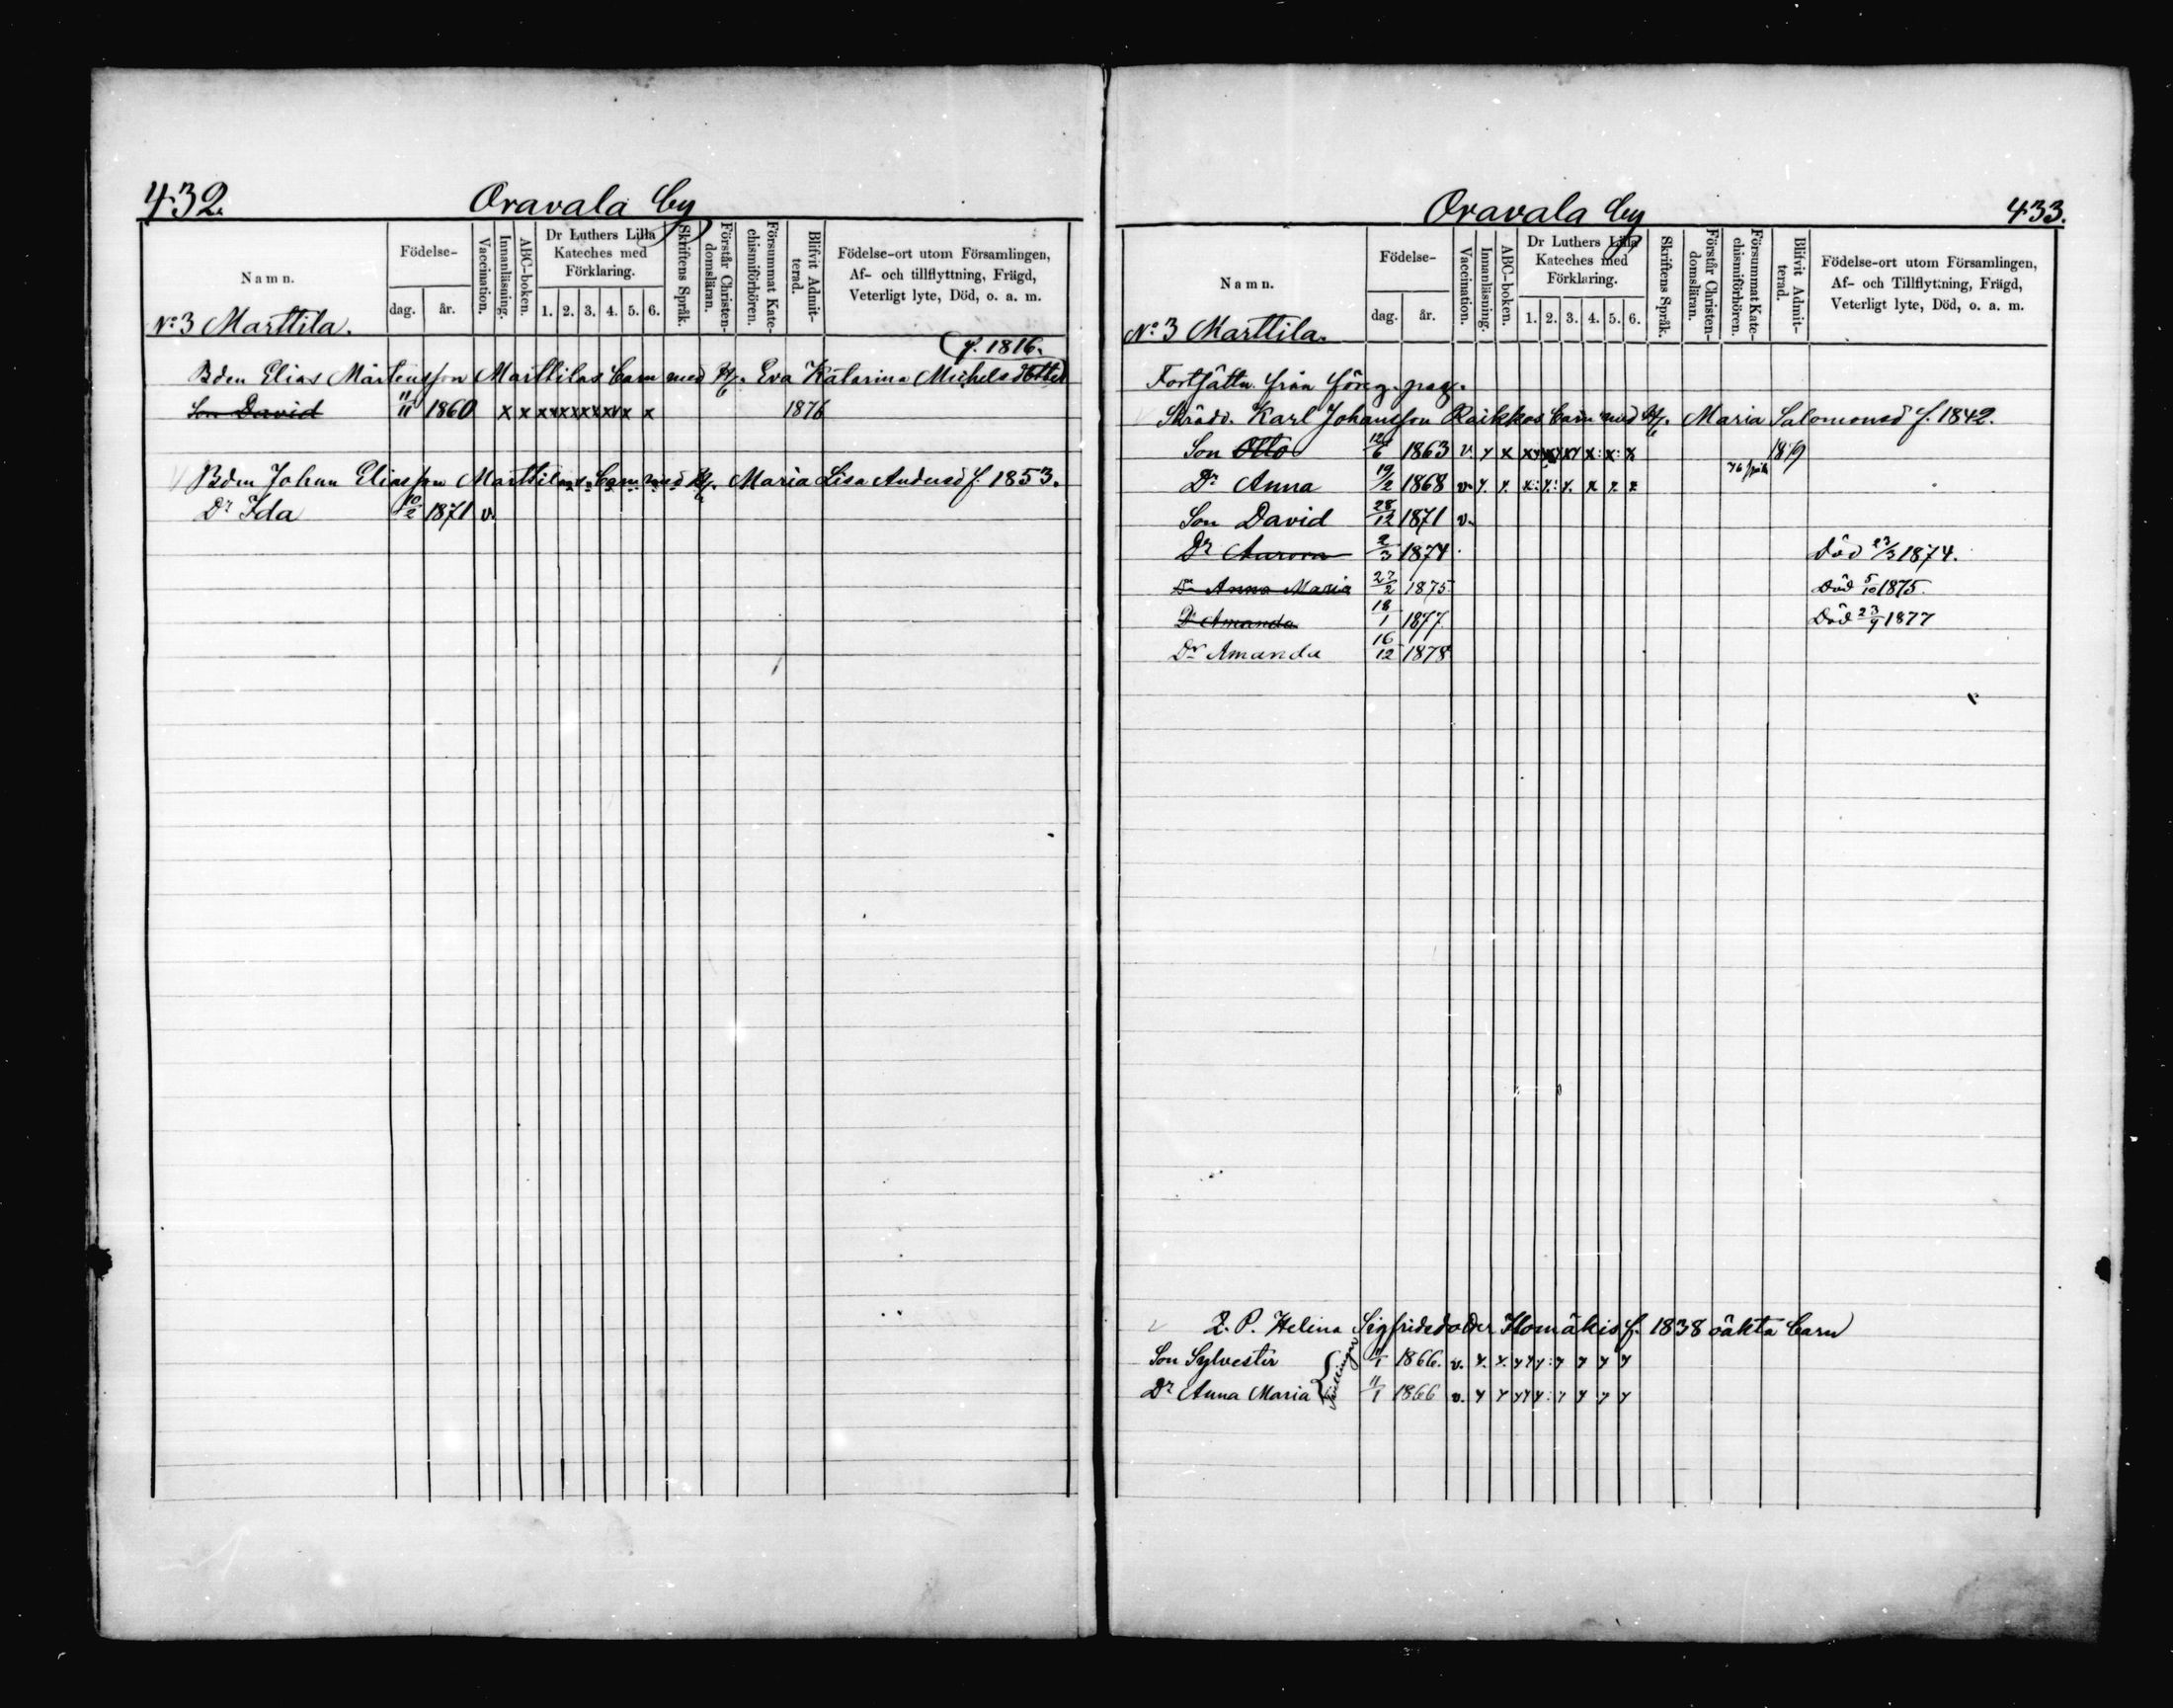 432.
Oravala by
Namn. Födelse- dag. år. Vaccination. Innanläsning. ABC-boken. Dr Luthers Lilla Kateches med Förklaring. 1. 2. 3. 4. 5. 6. Skriftens Språk. Förstår Christen-domsläran. Försummat Kate-chismiförhören. Blifvit Admit-terad. Födelse-ort utom Församlingen, Af- och tillflyttning, Frägd, Veterligt lyte, Död, o. a. m.
No 3 Marttila.
f. 1816.
Bden Elias Mårtensson Marttilas barn med H. Eva Katarina Michelsdotter
Son David 11/11 1860 x x x x x x x x x 1876
Bden Johan Eliasson Marttilas barn med H. Maria Lisa Andersd f. 1853.
Dr Ida 10/2 1871 v.
Oravala by
433.
Namn. Födelse- dag. år. Vaccination. Innanläsning. ABC-boken. Dr Luthers Lilla Kateches med Förklaring. 1. 2. 3. 4. 5. 6. Skriftens Språk. Förstår Christen-domsläran. Försummat Kate-chismiförhören. Blifvit Admit-terad. Födelse-ort utom Församlingen, Af- och Tillflyttning, Frägd, Veterligt lyte, Död, o. a. m.
No 3 Marttila.
Fortsättn. från föreg. pag.
Skrädd. Karl Johansson Raikkos barn med H. Maria Salomonsd f. 1842.
Son Otto 12/6 1863 v. x x x x x x x x 1879
Dr Anna 19/2 1868 v. x. x. x: x: x. x x x 76
Son David 28/12 1871 v.
Dr Aurora 2/3 1874. Död 23/3 1874.
Dr Anna Maria 27/2 1875. Död 5/10 1875.
Dr Amanda 18/1 1877. Död 23/9 1877
Dr Amanda 16/12 1878
Helina Sigfridsdotter f. 1838 oäkta barn
Son Sylvester 11/1 1866. v. x. x. x x x x x x
Tvillingar
Dr Anna Maria 11/1 1866 v. x x x x x x x x